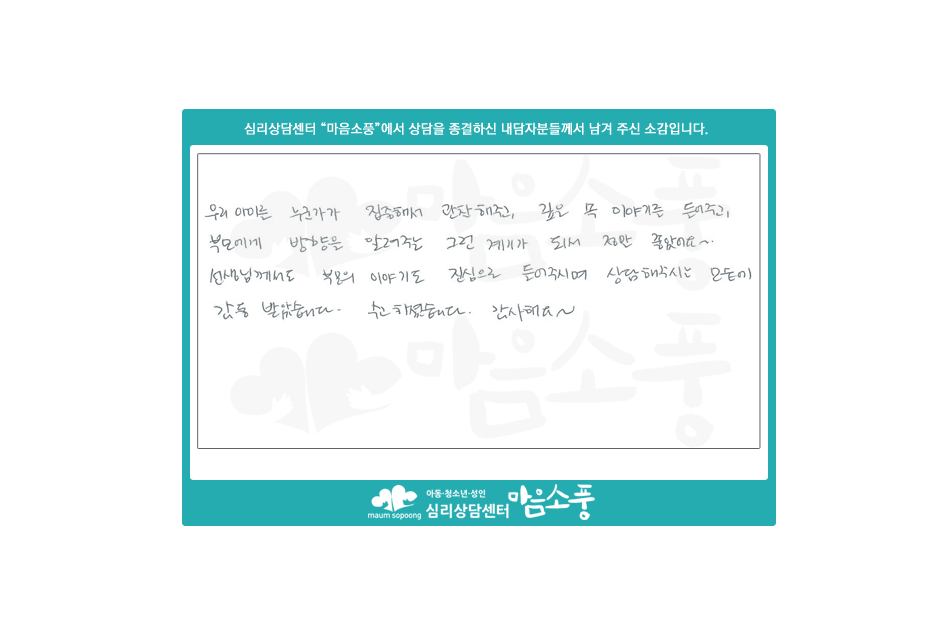 심리상담센터 “마음소풍”에서 상담을 종결하신 내담자분들께서 남겨 주신 소감입니다.
우리 아이를 누군가가 집중해서 관찰해주고, 깊은 속 이야기를 들어주고,
부모에게 방향을 알려주는 그런 계기가 되서 정말 좋았어요~
선생님께서도 부모의 이야기도 진심으로 들어주시며 상담해주시는 모습에
감동 받았습니다. 수고하셨습니다. 감사해요~
마음소풍
마음소풍
maum sopoong
아동·청소년·성인
심리상담센터 마음소풍